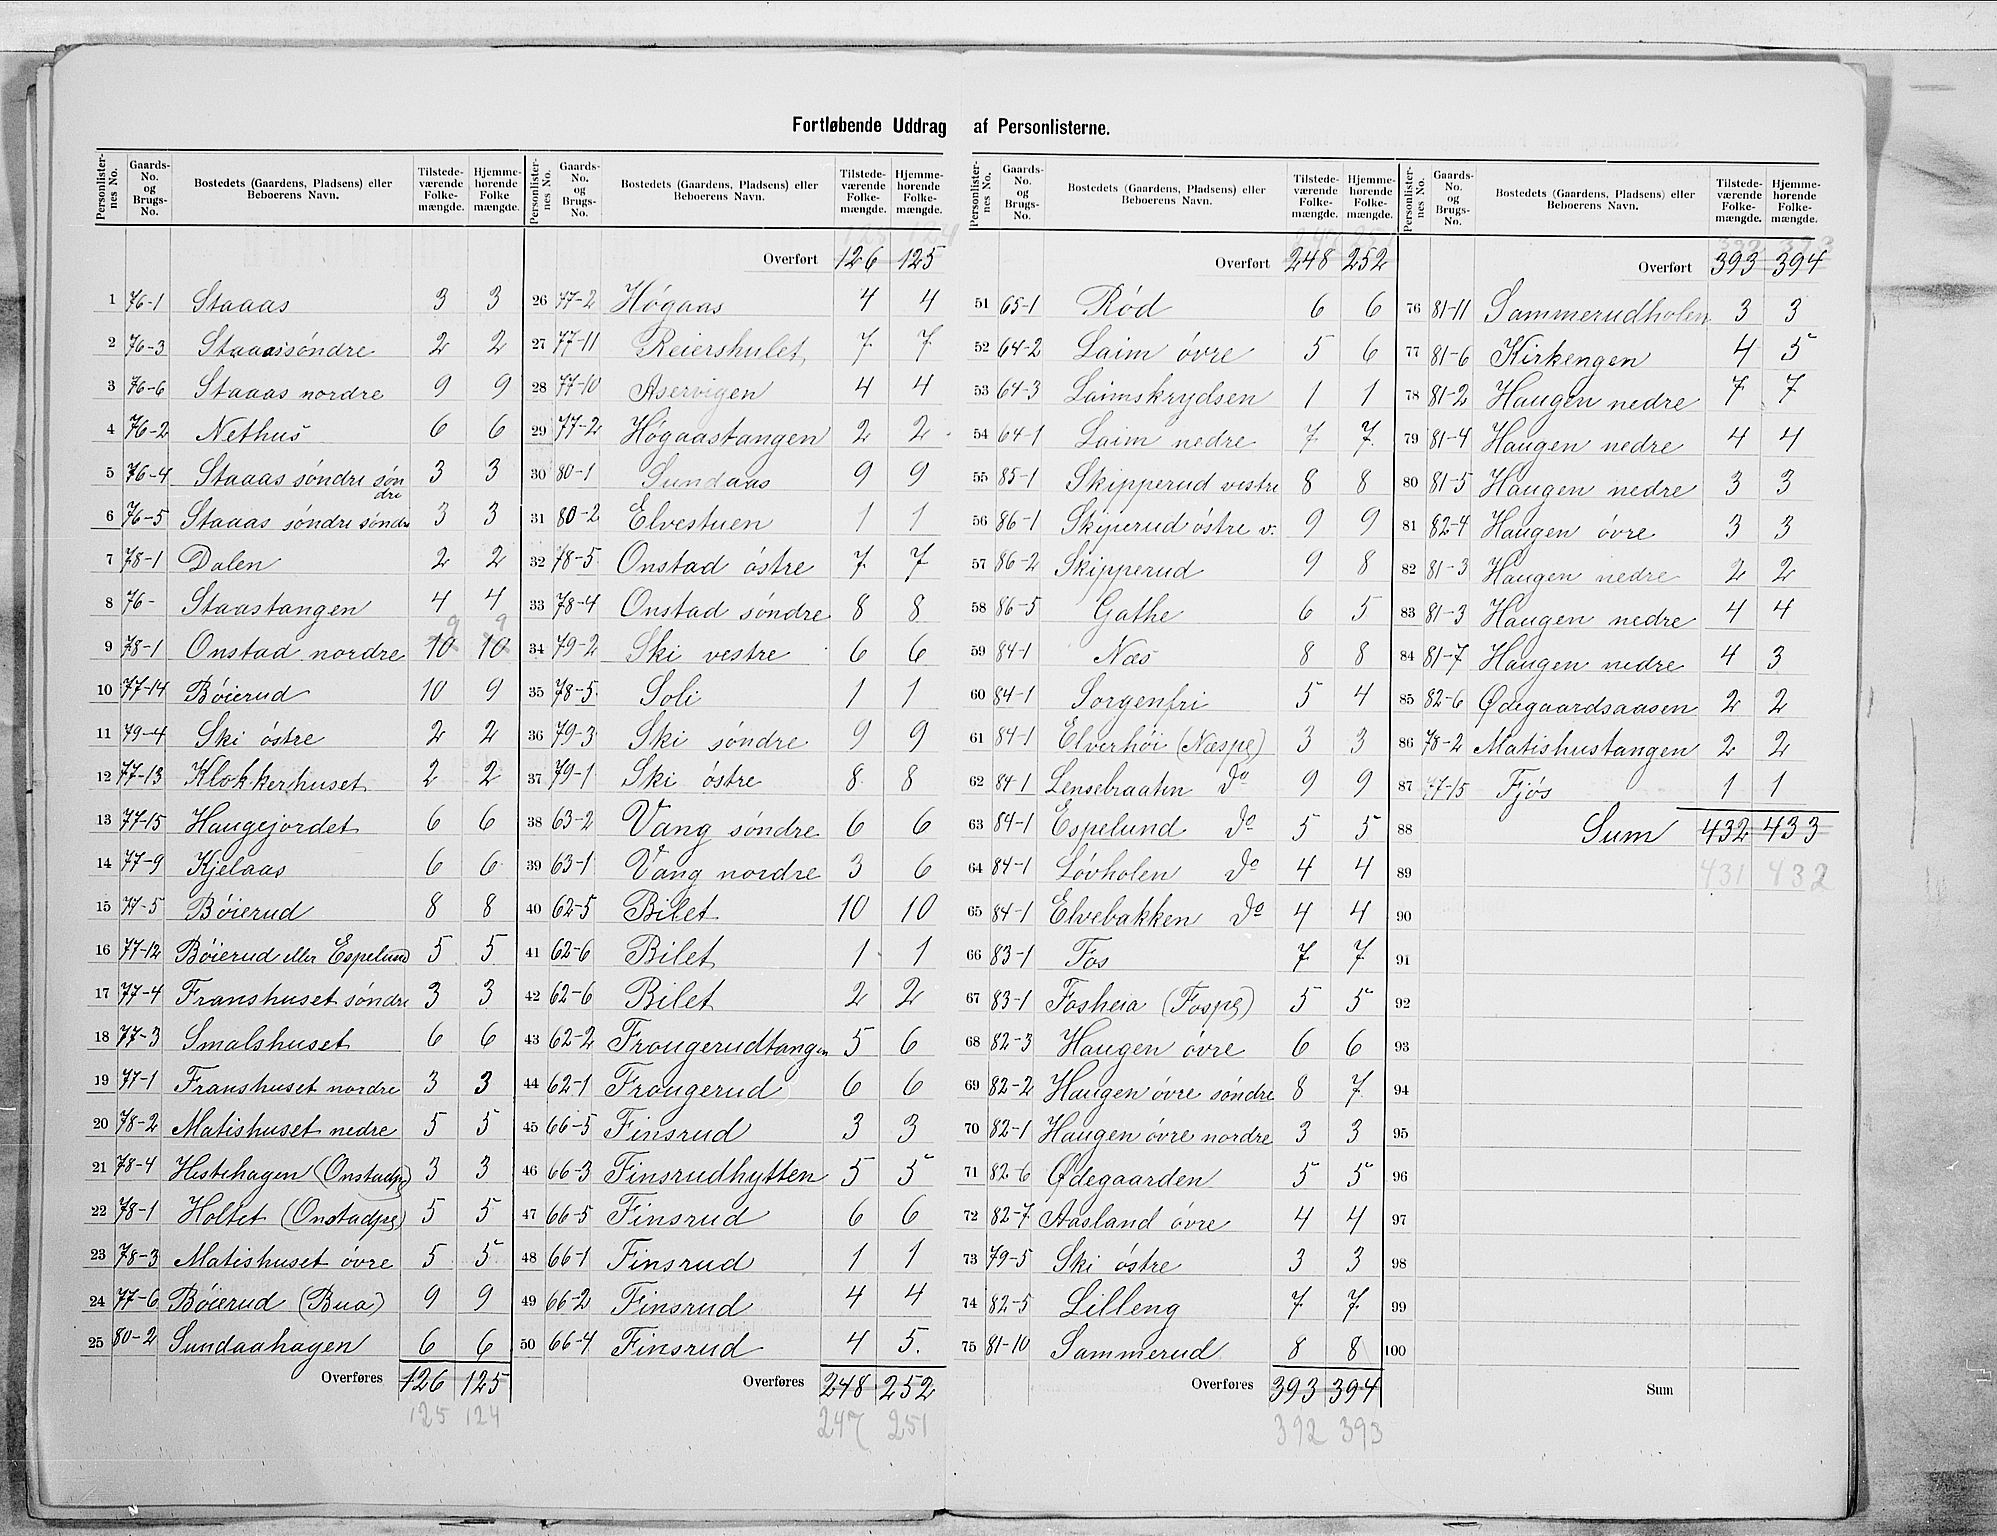 Fortløbende Uddrag af Personlisterne.
Personlister-nes No. Gaards-No. og Brugs-No. Bostedets (Gaardens, Pladsens) eller Beboerens Navn. Tilstede-værende Folke-mængde. Hjemme-hørende Folke mængde.
1 76-1 Staaas 3 3
2 76-3 Staaas söndre 2 2
3 76-6 Staaas nordre 9 9
4 76-2 Nethus 6 6
5 76-4 Staaas söndre söndre 3 3
6 76-5 Staaas söndre söndre 3 3
7 78-1 Dalen 2 2
8 76- Staastangen 4 4
9 9
9 78-1 Onstad nordre 10 10
10 77-14 Böierud 10 9
11 79-4 Ski östre 2 2
12 77-13 Klokkerhuset 2 2
13 77-15 Haugejordet 6 6
14 77-9 Kjelaas 6 6
15 77-5 Böierud 8 8
16 77-12 Böierud eller Espelund 5 5
17 77-4 Franshuset söndre 3 3
18 77-3 Smalshuset 6 6
19 77-1 Franshuset nordre 3 3
20 78-2 Matishuset nedre 5 5
21 78-4 Hestehagen (Onstadpl) 3 3
22 78-1 Holtet (Onstadpl) 5 5
23 78-3 Matishuset övre 5 5
24 77-6 Böierud (Bua) 9 9
25 80-2 Sundaahagen 6 6
Overføres 126 125
125 124
Personlister-nes No. Gaards-No. og Brugs-No. Bostedets (Gaardens, Pladsens) eller Beboerens Navn. Tilstede-værende Folke-mængde. Hjemme-hørende Folke-mængde.
Overført 126 125
26 77-2 Högaas 4 4
27 77-11 Reiershulet 7 7
28 77-10 Aservigen 4 4
29 77-2 Högaastangen 2 2
30 80-1 Sundaas 9 9
31 80-2 Elvestuen 1 1
32 78-5 Onstad östre 7 7
33 78-4 Onstad söndre 8 8
34 79-2 Ski vestre 6 6
35 78-5 Soli 1 1
36 79-3 Ski söndre 9 9
37 79-1 Ski östre 8 8
38 63-2 Vang söndre 6 6
39 63-1 Vang nordre 3 6
40 62-5 Bilet 10 10
41 62-6 Bilet 1 1
42 62-6 Bilet 2 2
43 62-2 Frougerudtangen 5 6
44 62-1 Frougerud 6 6
45 66-5 Finsrud 3 3
46 66-3 Finsrudhytten 5 5
47 66-5 Finsrud 6 6
48 66-1 Finsrud 1 1
49 66-2 Finsrud 4 4
50 66-4 Finsrud 4 5.
Overføres 248 252
247 251
Personlister-nes No. Gaards-No. og Brugs-No. Bostedets (Gaardens, Pladsens) eller Beboerens Navn. Tilstede-værende Folke-mængde. Hjemme-hørende Folke-mængde.
247 251
Overført 248 252
51 65-1 Röd 6 6
52 64-2 Laim övre 5 6
53 64-3 Laimskrydsen 1 1
54 64-1 Laim nedre 7 7
55 85-1 Skipperud vestre 8 8
56 86-1 Skiperud östre v. 9 9
57 86-2 Skipperud 9 8
58 86-5 Gathe 6 5
59 84-1 Næs 8 8
60 84-1 Sorgenfri 5 4
61 84-1 Elverhöi (Næspl) 3 3
62 84-1 Lensebraaten Do 9 9
63 84-1 Espelund Do 5 5
64 84-1 Lövholen Do 4 4
65 84-1 Elvebakken Do 4 4
66 83-1 Fos 7 7
67 83-1 Fosheia (Fospl) 5 5
68 82-3 Haugen övre 6 6
69 82-2 Haugen övre söndre 8 7
70 82-1 Haugen övre nordre 3 3
71 82-6 Ødegaarden 5 5
72 82-7 Aasland övre 4 4
73 79-5 Ski östre 3 3
74 82-5 Lilleng 7 7
75 81-10 Sammerud 8 8
Overføres 393 394
392 393
Personlister-nes No. Gaards-No. og Brugs-No. Bostedets (Gaardens, Pladsens) eller Beboerens Navn. Tilstede-værende Folke-mængde. Hjemme-hørende Folke-mængde.
392 393
Overført 393 394
76 81-11 Sammerudholen 3 3
77 81-6 Kirkengen 4 5
78 81-2 Haugen nedre 7 7
79 81-4 Haugen nedre 4 4
80 81-5 Haugen nedre 3 3
81 82-4 Haugen övre 3 3
82 81-3 Haugen nedre 2 2
83 81-3 Haugen nedre 4 4
84 81-7 Haugen nedre 4 3
85 82-6 Ødegaardsaasen 2 2
86 78-2 Matishustangen 2 2
87 77-15 Fjös 1 1
88 Sum 432 433
89 431 432
90
91
92
93
94
95
96
97
98
99
100
Sum